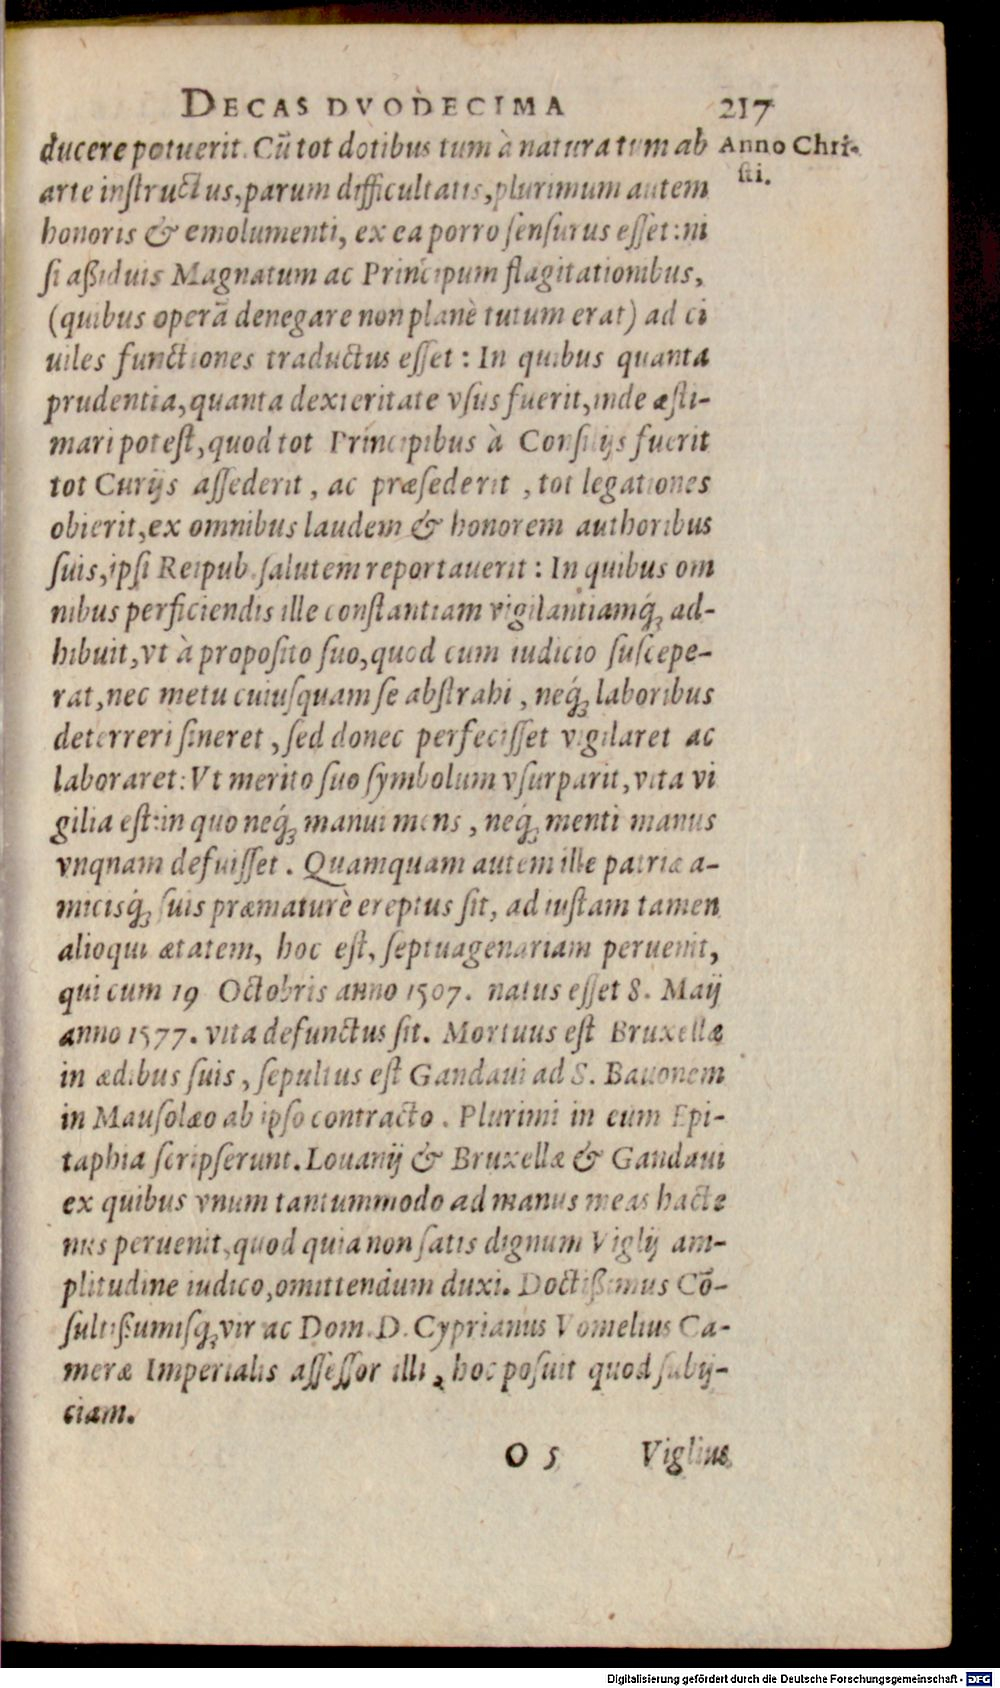 DECAS DVODECIMA 217
ducere potuerit. Cũ tot dotibus tum à natura tum ab
Anno Chri-
sti.
arte instructus, parum difficultatis, plurimum autem
honoris & emolumenti, ex ea porro sensurus esset: ni
si aßiduis Magnatum ac Principum flagitationibus,
(quibus operã denegare non planè tutum erat) ad ci
uiles functiones traductus esset: In quibus quanta
prudentia, quanta dexteritate vsus fuerit, inde æsti-
mari potest, quod tot Principibus à Consilijs fuerit
tot Curijs assederit, ac præsederit, tot legationes
obierit, ex omnibus laudem & honorem authoribus
suis, ipsi Reipub. salutem reportauerit: In quibus om
nibus perficiendis ille constantiam vigilantiamq́; ad-
hibuit, vt à proposito suo, quod cum iudicio suscepe-
rat, nec metu cuiusquam se abstrahi, neq́; laboribus
deterreri sineret, sed donec perfecisset vigilaret ac
laboraret: Vt merito suo symbolum vsurparit, vita vi
gilia est: in quo neq́; manui mens, neq́; menti manus
vnqnam defuisset. Quamquam autem ille patriæ a-
micisq́; suis præmaturè ereptus sit, ad iustam tamen
alioqui ætatem, hoc est, septuagenariam peruenit,
qui cum 19 Octobris anno 1507. natus esset 8. Maij
anno 1577. vita defunctus sit. Mortuus est Bruxellæ
in ædibus suis, sepultus est Gandaui ad S. Bauonem
in Mausolæo ab ipso contracto. Plurimi in eum Epi-
taphia scripserunt. Louanij & Bruxellæ & Gandaui
ex quibus vnum tantummodo ad manus meas hacte
nus peruenit, quod quia non satis dignum Viglij am-
plitudine iudico, omittendum duxi. Doctißimus Cõ-
sultißumisq; vir ac Dom. D. Cyprianus Vomelius Ca-
meræ Imperialis assessor illi, hoc posuit quod subij-
ciam.
O 5 Viglius
Digitalisierung gefördert durch die Deutsche Forschungsgemeinschaft - DFG